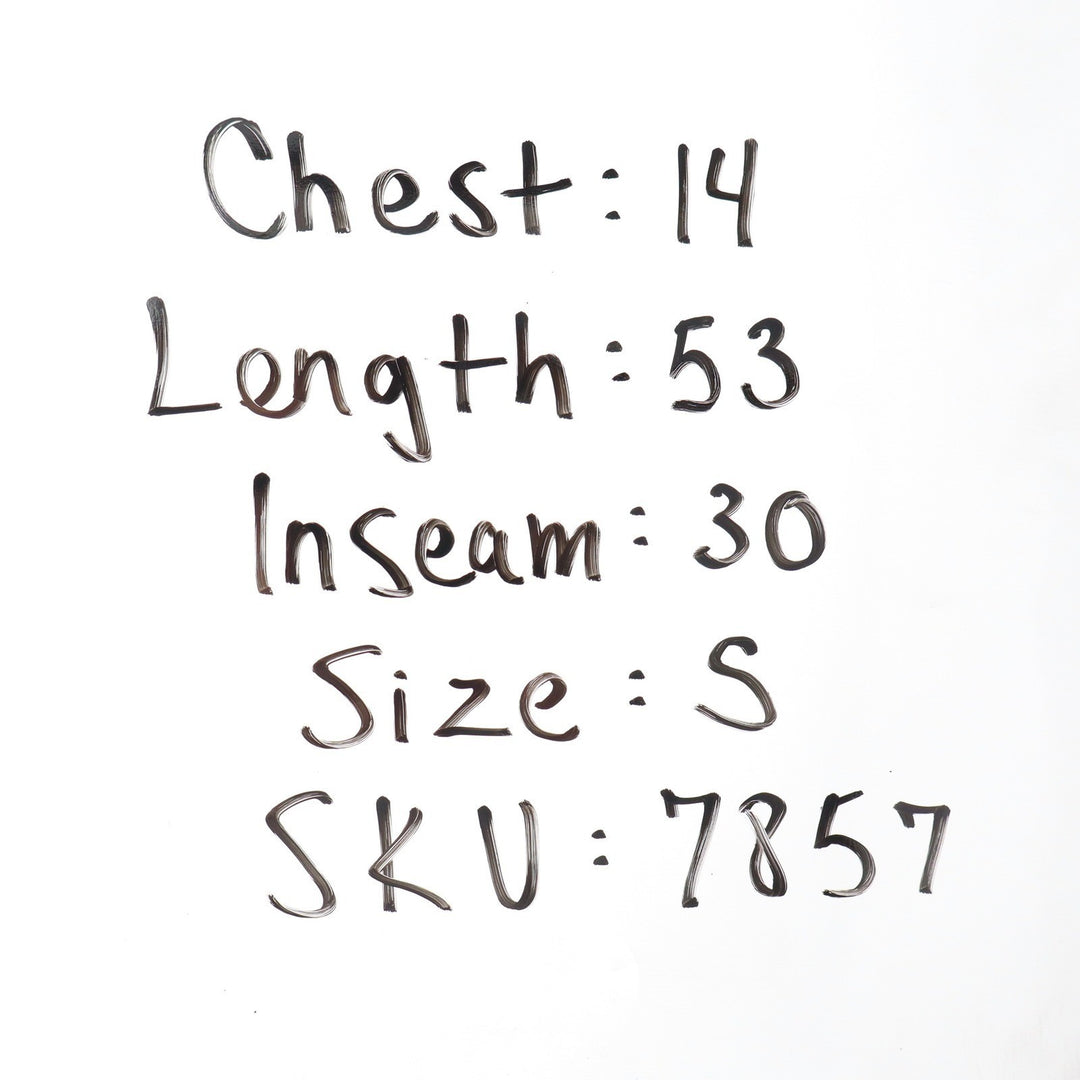 Chest: 14
Length: 53
Inseam: 30
Size: S
SKU: 7857